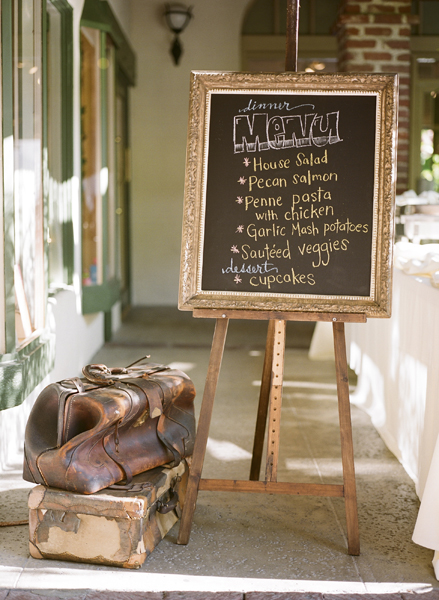 dinner
MENU
* House Salad
* Pecan salmon
* Penne pasta
with chicken
* Garlic Mash potatoes
* Sautéed veggies
dessert
* cupcakes